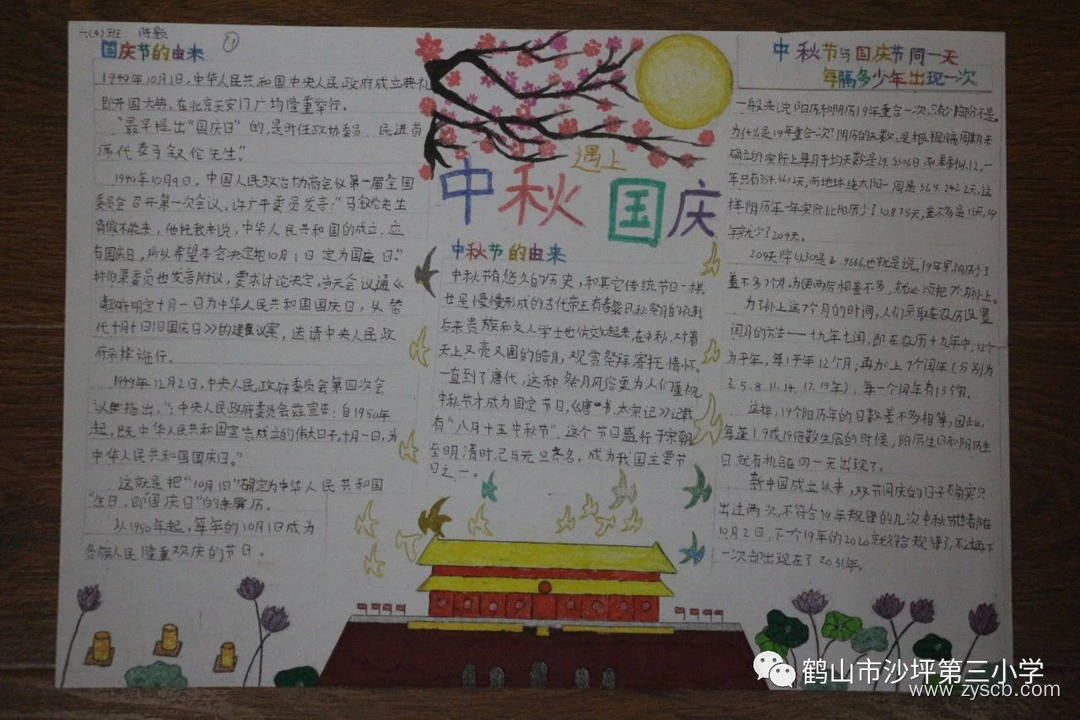 六(4)班 陈颖
①
国庆节的由来
1949年10月1日,中华人民共和国中央人民政府成立典礼
即开国大典,在北京天安门广场隆重举行。
"最早提出"国庆日"的,是 政协委员、民进首
席代表马叙伦先生。"
1949年10月9日,中国人民政治协商会议第一届全国
委员会召开第一次会议,许广平委员发言:"马叙伦先生
请假不能来,他托我来说,中华人民共和国的成立,应
有国庆日,所以希望本会决定把10月1日定为国庆日。"
林伯渠委员也发言附议,要求讨论决定,当天会议通《
政府明定十月一日为中华人民共和国国庆日,以替
代十月十日旧国庆日》的建议案,送请中央人民政
府采择施行。
1949年12月2日,中央人民政府委员会第四次会
议 指出,":中央人民政府委员会兹宣告:自1950年
起,即 中华人民共和国宣告成立的伟大日子,十月一日,为
中华人民共和国国庆日。"
这就是把"10月1日"确定为中华人民共和国
"生日,即"国庆日"的来 历。
从1950年起,每年的10月1日成为
各族人民隆重欢庆的节日。
遇上
中秋 国庆
中秋节的由来
中秋节有悠久的历史,和其它传统节日一样
也是慢慢形成的,古代帝王有春祭日,秋祭月的礼制
后来贵族和文人学士也仿效起来,在中秋,对着
天上又亮又圆的皓月,观赏祭拜,寄托情怀。
一直到了唐代,这种祭月风俗更为人们重视
中秋节才成为固定节日,《唐书、太宗记》记载
有"八月十五中秋节",这个节日盛行于宋朝
至明清时,已与元旦齐名,成为我国主要节
日之一。
中秋节与国庆节同一天
每隔多少年出现一次
一般来说阳历和阴历19年重合一次,
为什么是19年重合一次?阴历的天数,是根据月 周期来
确立的实际上每月平均天数是29.5306日 12,一
年只有354.3672天,而地球绕太阳一周是365.2422天,这
样阴历年一年实际比阳历少了10.875天,差不多是11天,19
年就少了209天。
209天除以30是6.9666,也就是说,19年里阴历少了
差不多7个月,为使两历相差不多,就必须把7个月补上。
为了补上这7个月的时间,人们采取在农历设置
闰月的方法——十九年七闰,即在农历十九年中,12个
为平年,每1平年12个月;再加上7个闰年(分别为
3.5.8.11.14.17.19年),每一个闰年有13个月。
这样,19个阳历年的日数差不多相等,因此,
每逢19或19倍数生辰的时候,阳历生日和阴历生
日就有机会在同一天出现了。
新中国成立以来,双节同庆的日子确实只
出过两次,不符合19年规律的几次中秋节也都在
10月2日,下一个19年的2020就符合规律了,不过再下
一次却出现在了2031年。
鹤山市沙坪第三小学
www.zyscb.com